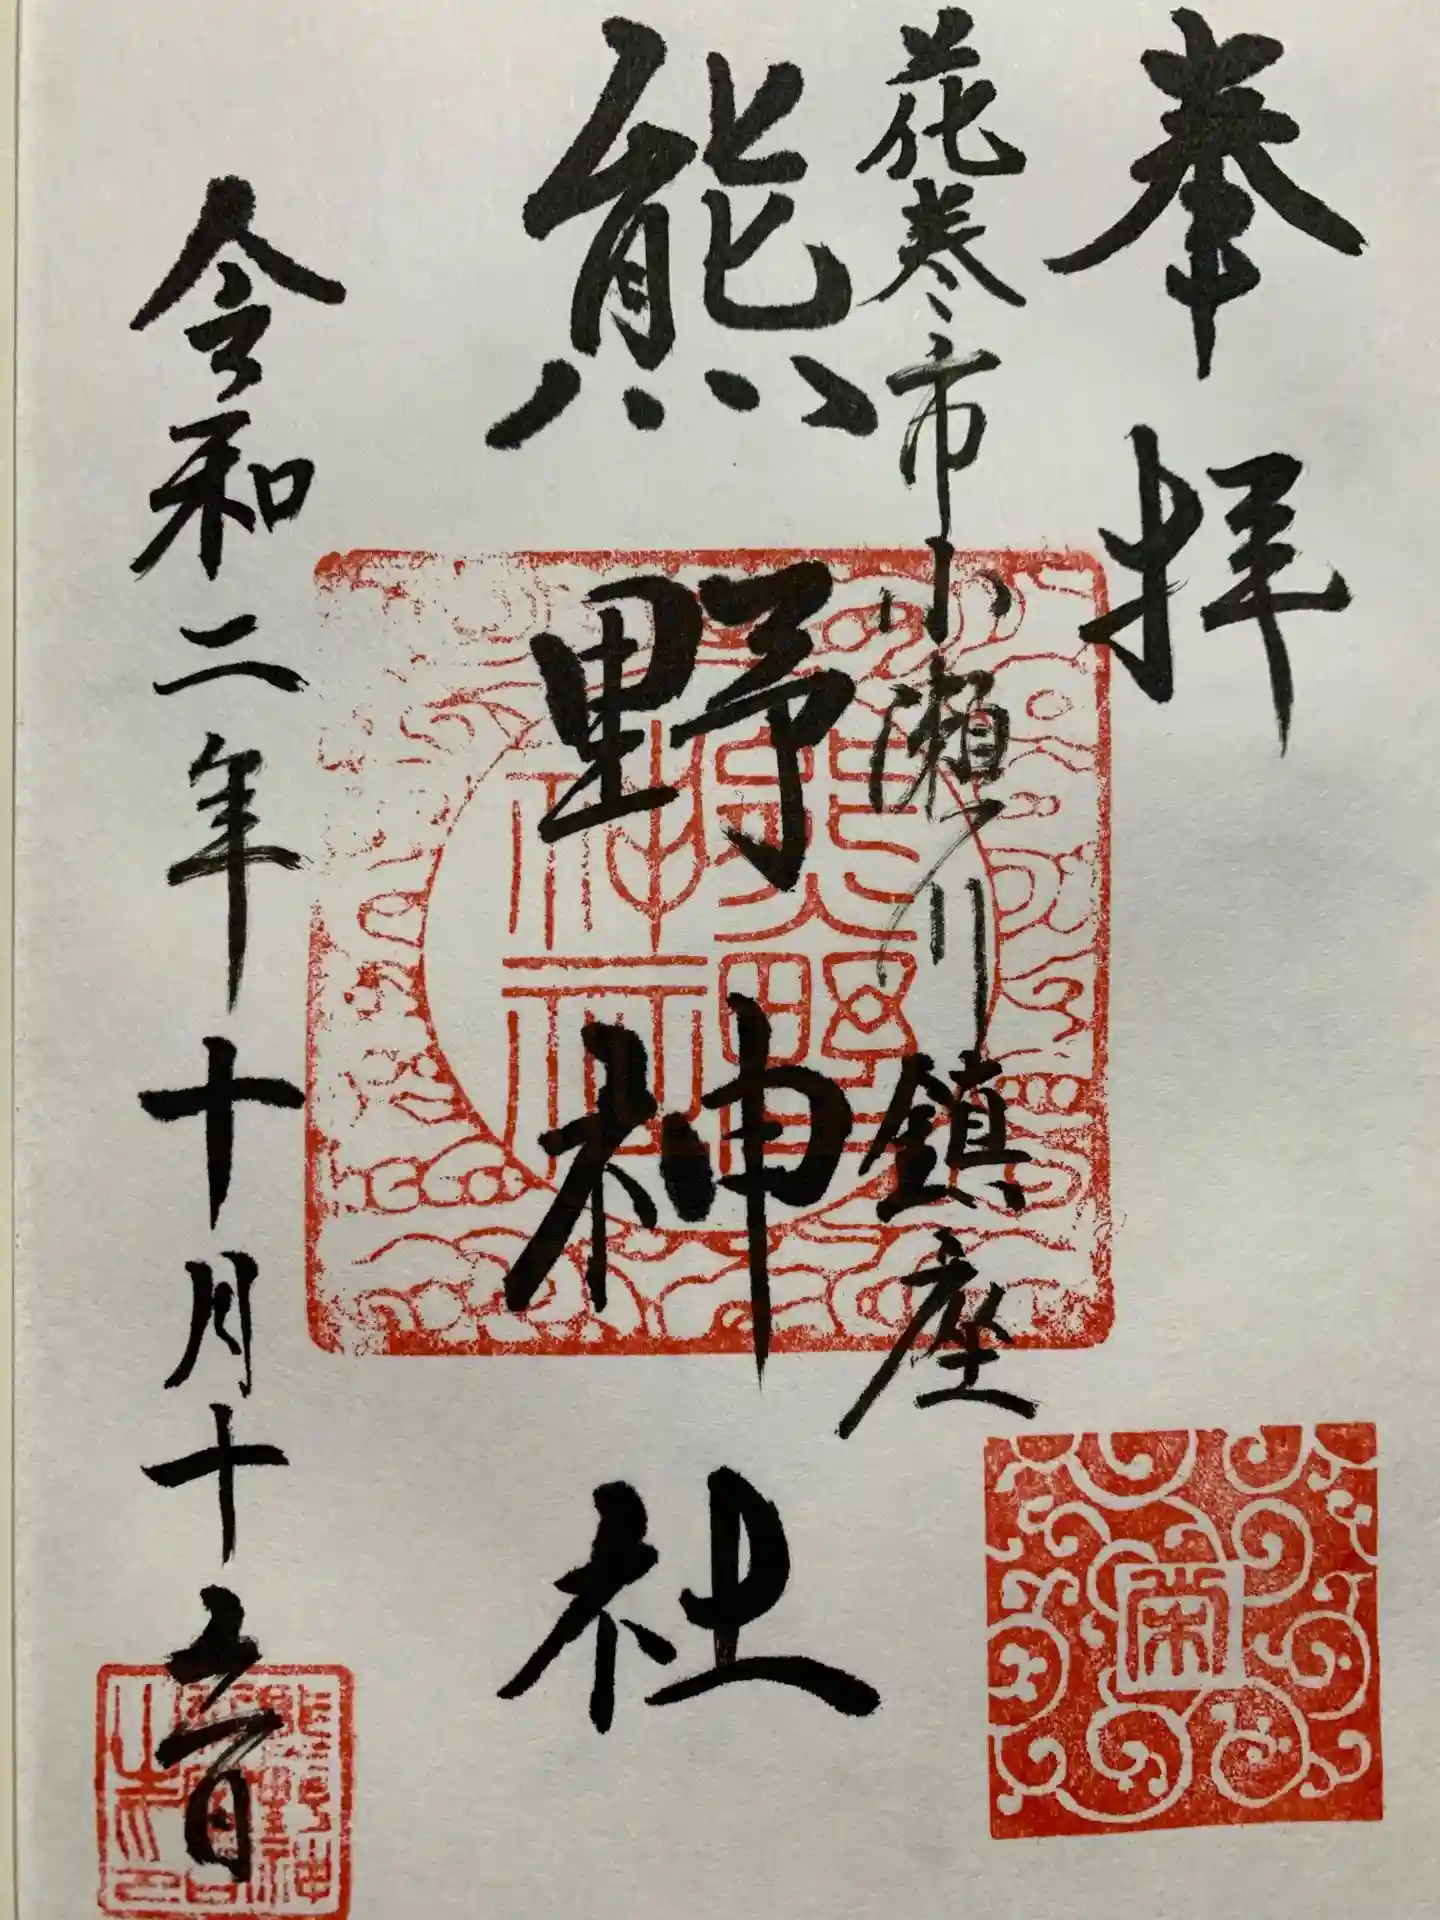 奉拝
花巻市小瀬川鎮座
熊野神社
熊野神社
令和二年十月十日